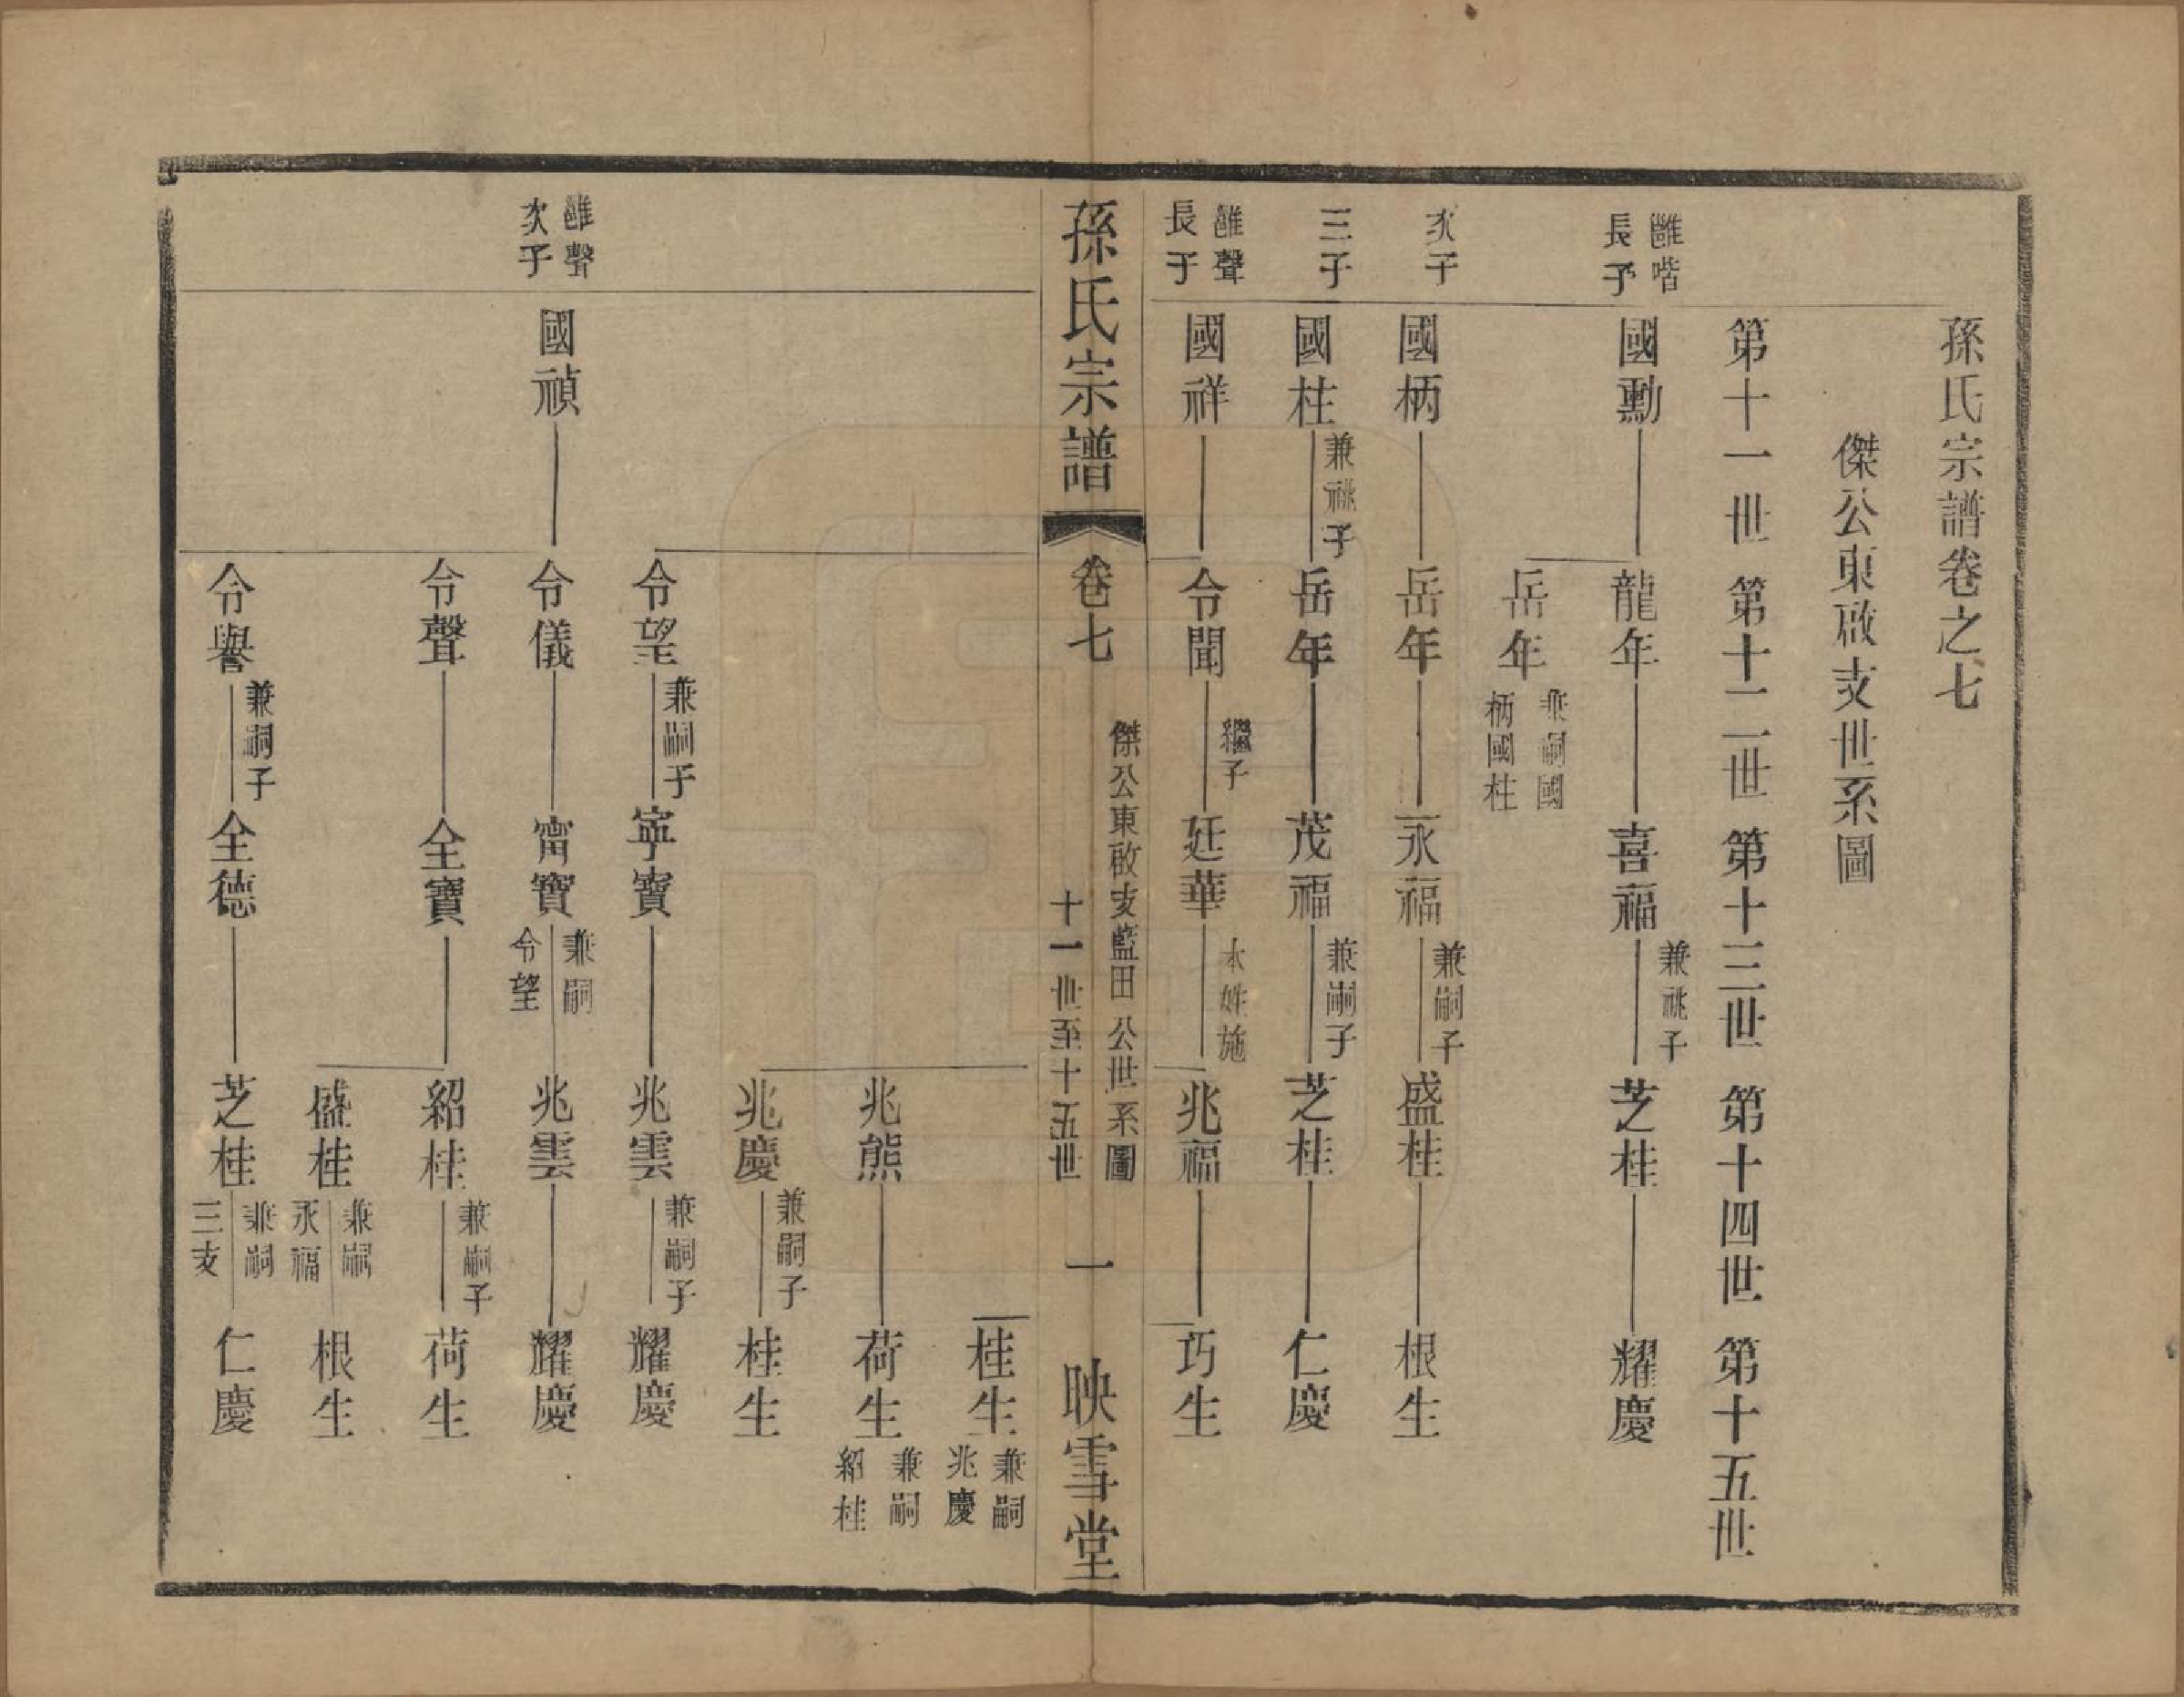 孫氏宗譜卷之七
傑公東啟支世系圖
第十一世 第十二世 第十三世 第十四世 第十五世
雝喈
長子
國勳 龍年 喜福 兼祧子 芝桂 耀慶
岳年 兼嗣國
柄國柱
次子
國柄 岳年 永福 兼嗣子 盛桂 根生
三子
國柱 兼祧子 岳年 茂福 兼嗣子 芝桂 仁慶
雝聲
長子
國祥 令聞 繼子 廷華 本姓施 兆福 巧生
孫氏宗譜 卷七 傑公東啟支藍田公世系圖
十一世至十五世 一 映雪堂
桂生 兼嗣
兆慶
兆熊 荷生 兼嗣
紹桂
兆慶 兼嗣子 桂生
令望 兼嗣子 寧寶 兆雲 兼嗣子 耀慶
雝聲
次子
國禎 令儀 甯寶 兼嗣
令望 兆雲 耀慶
令聲 全寶 紹桂 兼嗣子 荷生
盛桂 兼嗣
永福 根生
令譽 兼嗣子 全德 芝桂 兼嗣
三支 仁慶